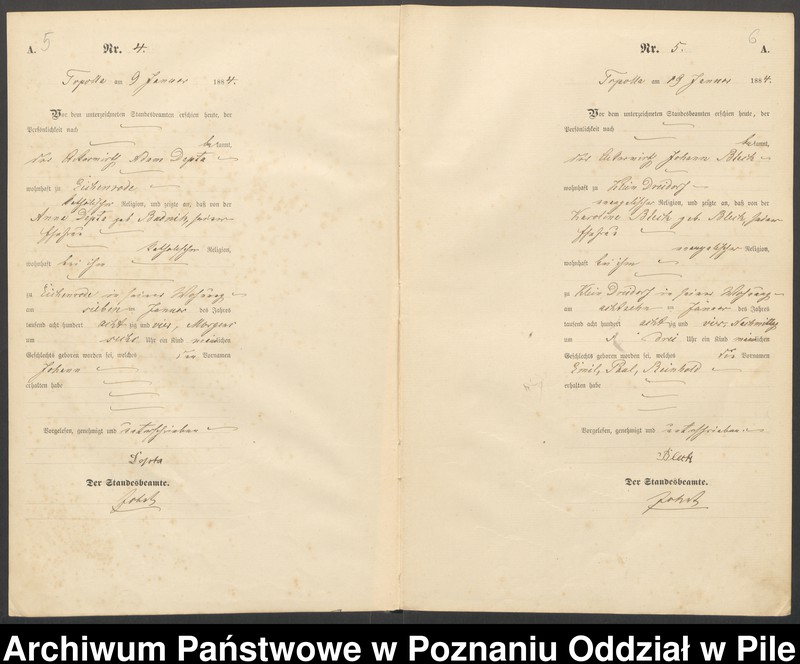 A. 5 Nr. 4.
am 9 Januar 1884.
Vor dem unterzeichneten Standesbeamten erschien heute, der
Persönlichkeit nach
bekannt,
der Ackerwirth Adam Depta
wohnhaft zu Eichenrode
katholischer Religion, und zeigte an, daß von der
Anna Depta geb. seiner
Ehefrau
katholischer Religion,
wohnhaft bei ihm
zu Eichenrode in seiner Wohnung
am sieben ten Januar des Jahres
tausend acht hundert acht zig und vier, Morgens
um sechs Uhr ein Kind männlichen
Geschlechts geboren worden sei, welches den Vornamen
Johann
erhalten habe
Vorgelesen, genehmigt und unterschrieben
Depta
Der Standesbeamte.
6
Nr. 5. A.
am 19 Januar 1884.
Vor dem unterzeichneten Standesbeamten erschien heute, der
Persönlichkeit nach
bekannt,
der Ackerwirth Johann Bleck
wohnhaft zu Klein
evangelischer Religion, und zeigte an, daß von der
Karoline Bleck geb. Bleck, seiner
Ehefrau
evangelischer Religion,
wohnhaft bei ihm
zu Klein in seiner Wohnung
am achtzehn ten Januar des Jahres
tausend acht hundert acht zig und vier, Nachmittags
um drei Uhr ein Kind männlichen
Geschlechts geboren worden sei, welches die Vornamen
Emil, Paul, Reinhold
erhalten habe
Vorgelesen, genehmigt und unterschrieben
Bleck
Der Standesbeamte.
Archiwum Państwowe w Poznaniu Oddział w Pile